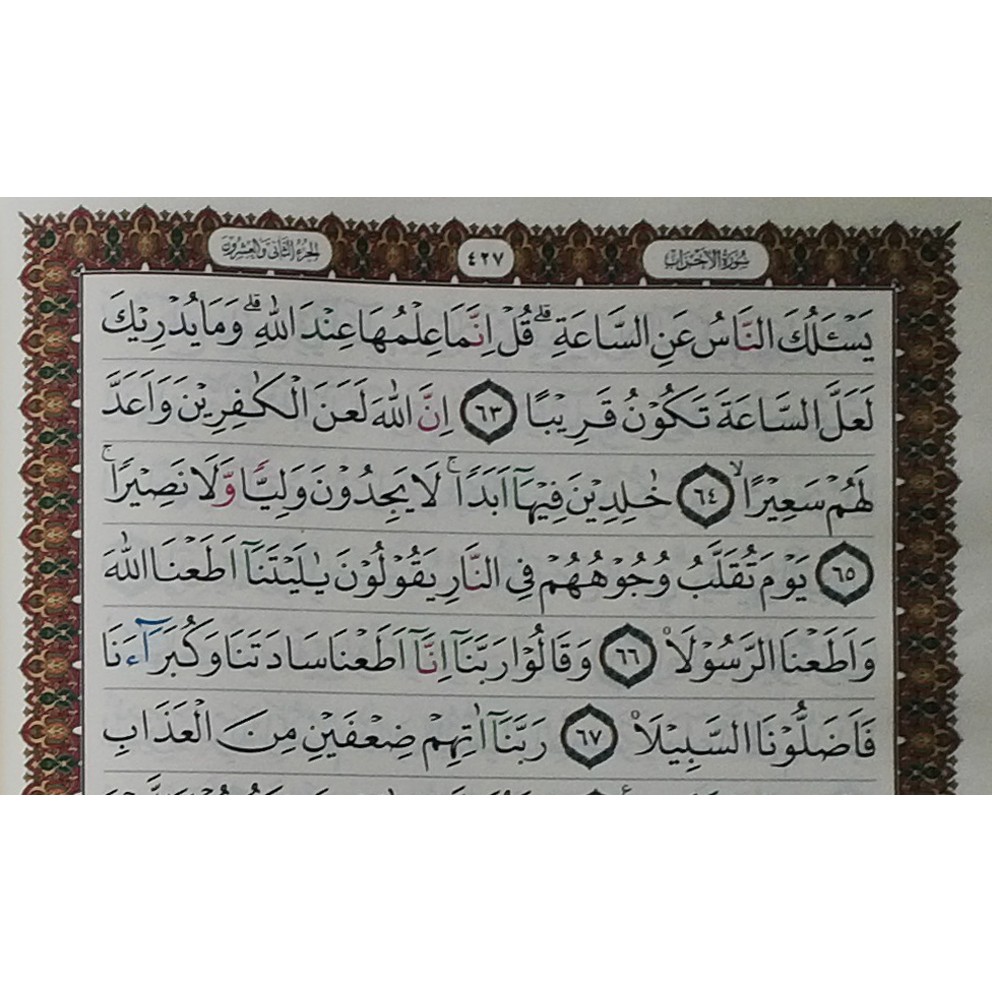 سُورَةُ الْاَحْزَابِ ٤٢٧ الجزء الثانی والعشرون
يَسْـَٔلُكَ النَّاسُ عَنِ السَّاعَةِ ۗ قُلْ اِنَّمَا عِلْمُهَا عِنْدَ اللّٰهِ ۗ وَمَا يُدْرِيْكَ
لَعَلَّ السَّاعَةَ تَكُوْنُ قَرِيْبًا ٦٣ اِنَّ اللّٰهَ لَعَنَ الْكٰفِرِيْنَ وَاَعَدَّ
لَهُمْ سَعِيْرًاۙ ٦٤ خٰلِدِيْنَ فِيْهَآ اَبَدًاۚ لَا يَجِدُوْنَ وَلِيًّا وَّلَا نَصِيْرًاۚ
٦٥ يَوْمَ تُقَلَّبُ وُجُوْهُهُمْ فِى النَّارِ يَقُوْلُوْنَ يٰلَيْتَنَآ اَطَعْنَا اللّٰهَ
وَاَطَعْنَا الرَّسُوْلَا۠ ٦٦ وَقَالُوْا رَبَّنَآ اِنَّآ اَطَعْنَا سَادَتَنَا وَكُبَرَاۤءَنَا
فَاَضَلُّوْنَا السَّبِيْلَا۠ ٦٧ رَبَّنَآ اٰتِهِمْ ضِعْفَيْنِ مِنَ الْعَذَابِ